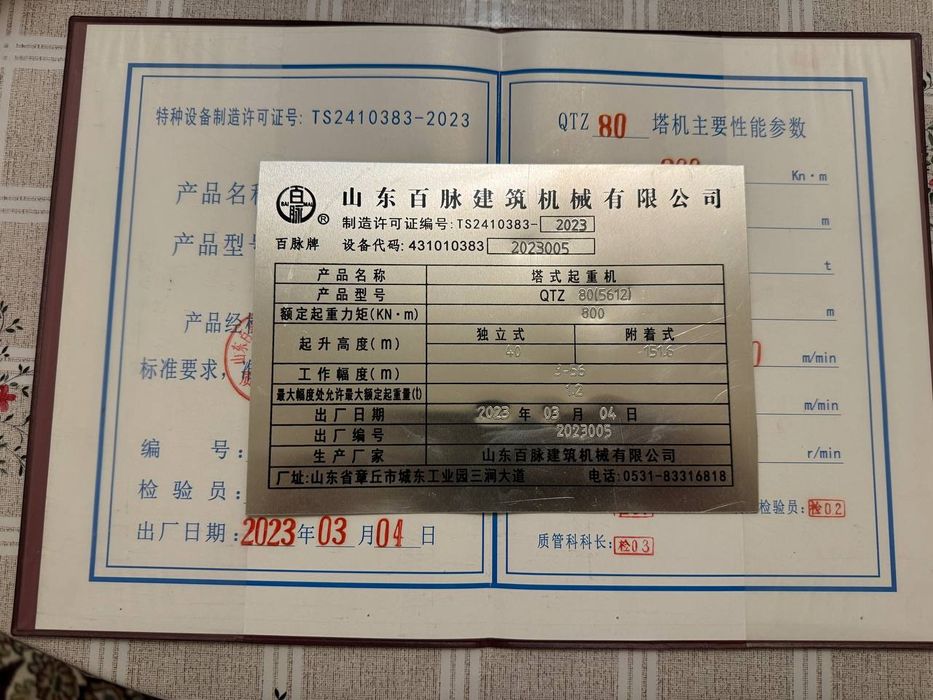 特种设备制造许可证号: TS2410383-2023
产品名称
产品型号
产品经检
标准要求,
编 号:
检 验 员:
出厂日期:2023年03月04日
QTZ 80 塔机主要性能参数
Kn·m
m
t
m
m/min
m/min
r/min
检验员:检02
质管科科长:检03
百脉
BAI MAI
®
百脉牌
山东百脉建筑机械有限公司
制造许可证编号:TS2410383-2023
设备代码:431010383 2023005
产品名称 塔式起重机
产品型号 QTZ 80(5612)
额定起重力矩(KN·m) 800
起升高度(m) 独立式 附着式
40 151.6
工作幅度(m) 3-56
最大幅度处允许最大额定起重量(t) 1.2
出厂日期 2023 年 03 月 04 日
出厂编号 2023005
生产厂家 山东百脉建筑机械有限公司
厂址:山东省章丘市城东工业园三涧大道 电话:0531-83316818